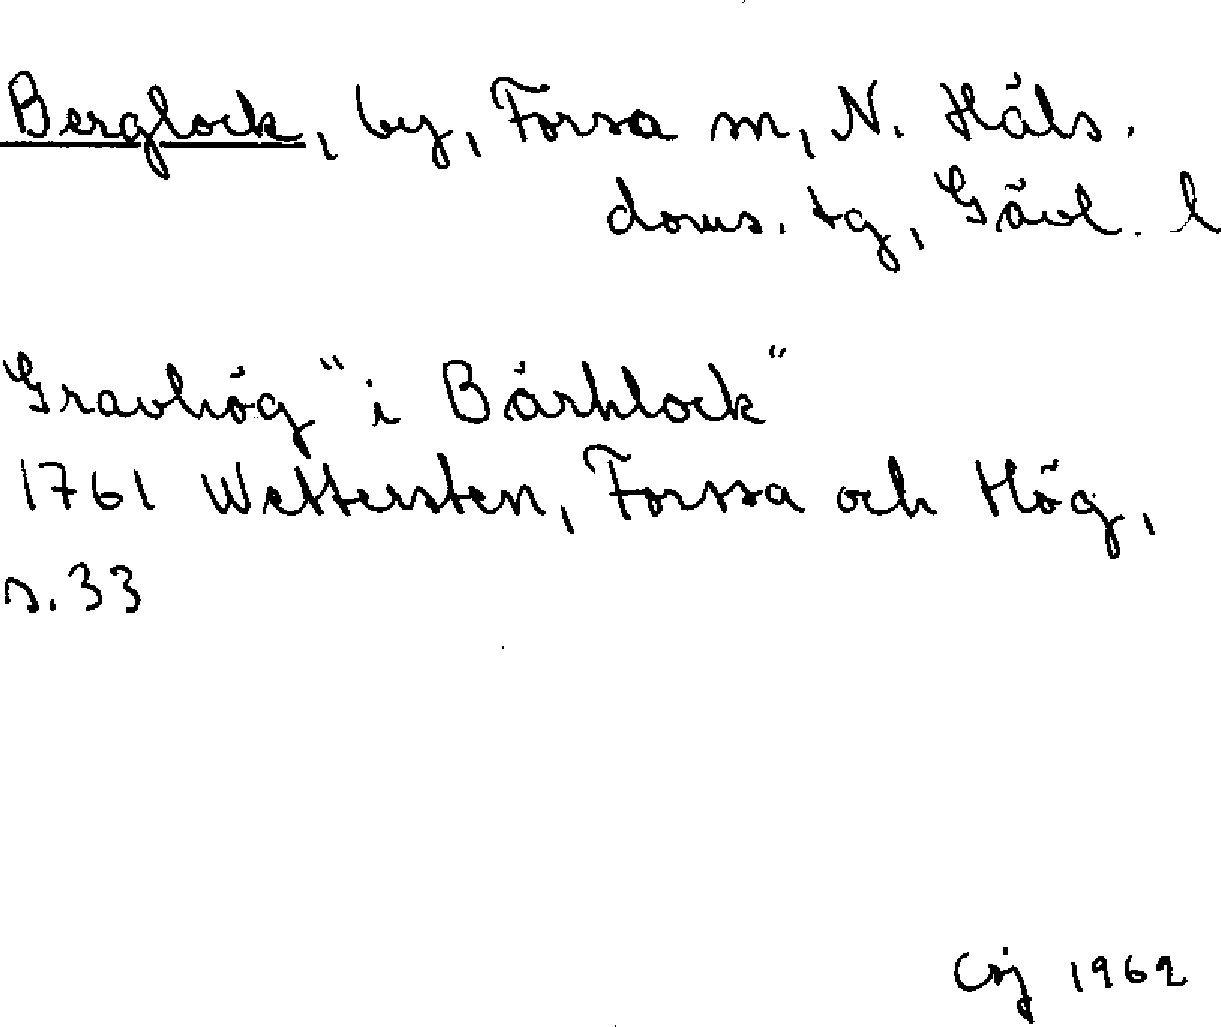 Berglock, by, Forsa sn, N. Häls.
doms. tg, Gävl. l
Gravhög "i Bärhlock"
1761 Wettersten, Forssa och Hög,
s. 33
CSj 1962